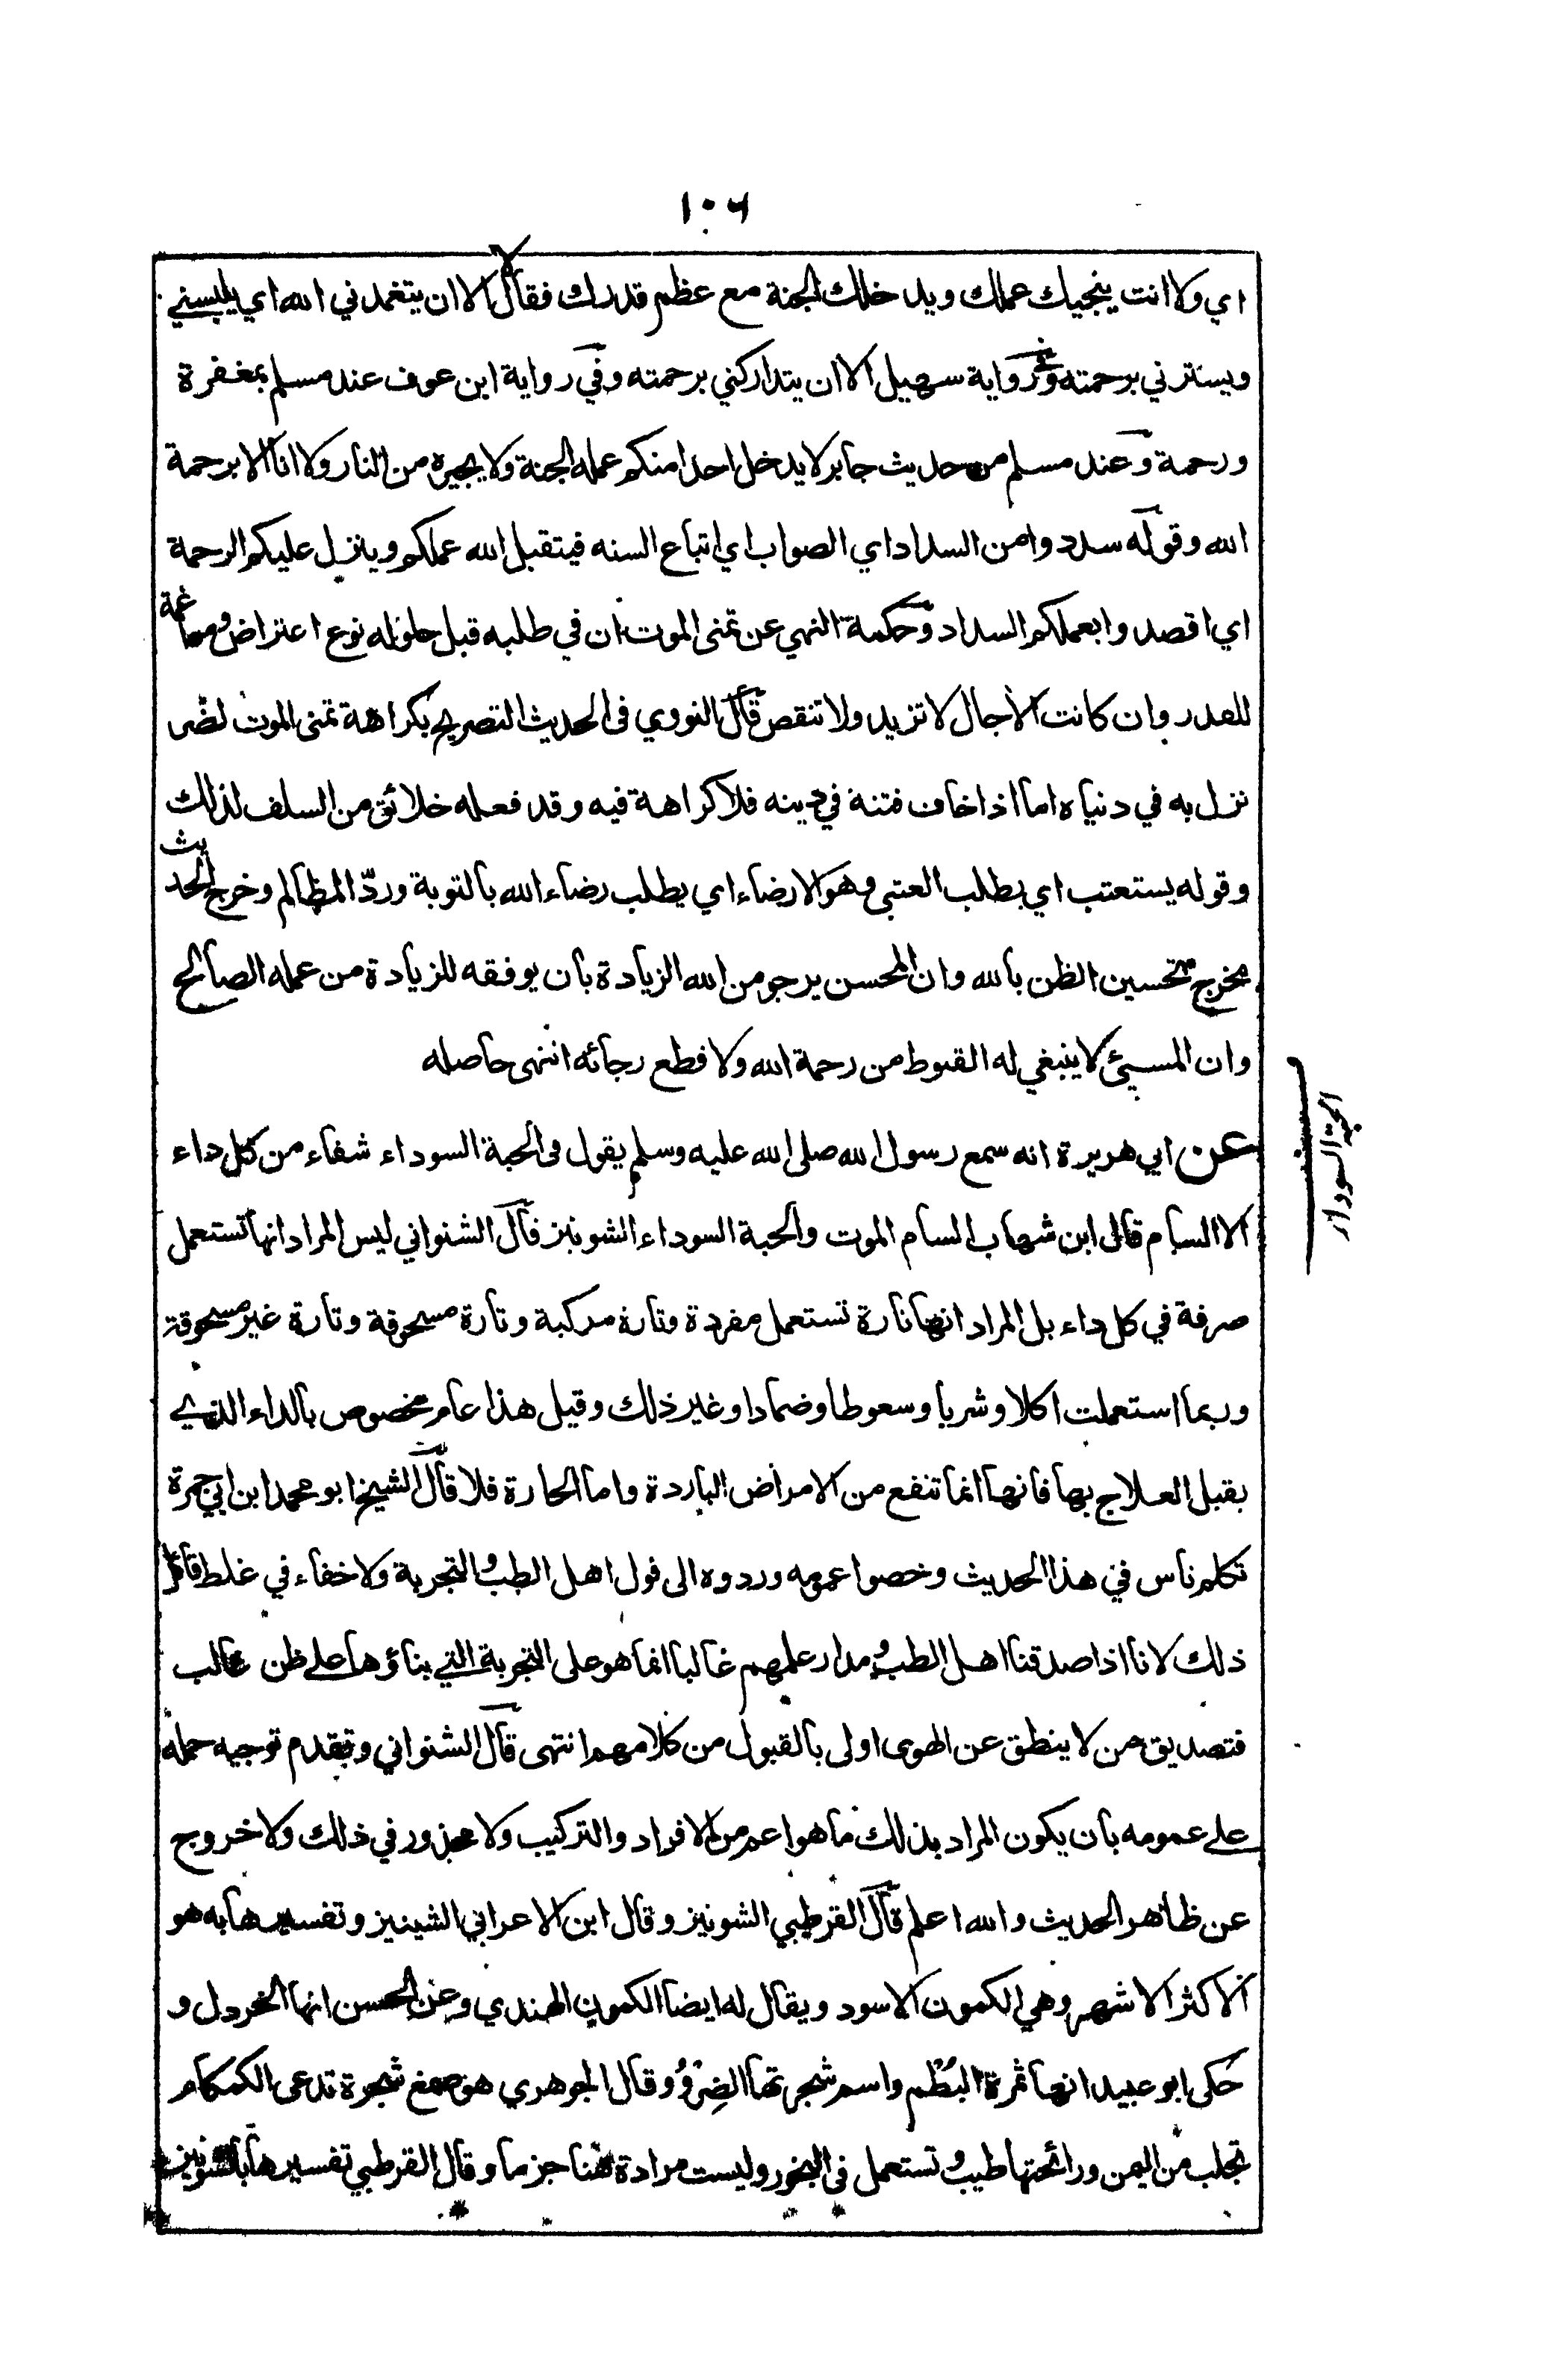 ١٠٦
اي ولا انت ينجيك عملك ويدخلك الجنة مع عظم قدرك فقال لا الا ان يتغمدني الله اي يلبسني
ويسترني برحمته وفي رواية سهيل الا ان يتداركني برحمته وفي رواية ابن عوف عند مسلم بمغفرة
ورحمة وعند مسلم من حديث جابر لا يدخل احدا منكم عمله الجنة ولا يجيره من النار ولا انا الا برحمة
الله وقوله سددوا من السداد اي الصواب اي اتباع السنه فيتقبل الله عملكم وينزل عليكم الرحمة
اي اقصدوا بعملكم السداد وحكمة النهي عن تمنى الموت ان في طلبه قبل حلوله نوع اعتراض ومراغمة
للقدر وان كانت الآجال لا تزيد ولا تنقص قال النووي فى الحديث التصريح بكراهة تمنى الموت لضر
نزل به في دنياه اما اذا خاف فتنة في دينه فلا كراهة فيه وقد فعله خلائق من السلف لذلك
وقوله يستعتب اي يطلب العتبى وهو الارضاء اي يطلب رضاء الله بالتوبة وردّ المظالم وخرج الحديث
مخرج تحسين الظن بالله وان المحسن يرجو من الله الزيادة بان يوفقه للزيادة من عمله الصالح
وان المسيئ لا ينبغي له القنوط من رحمة الله ولا قطع رجائه انتهى حاصله
عن ابي هريرة انه سمع رسول الله صلى الله عليه وسلم يقول فى الحبة السوداء شفاء من كل داء
الا السام قال ابن شهاب السام الموت والحبة السوداء الشونيز قال الشنواني ليس المراد انها تستعمل
صرفة في كل داء بل المراد انها تارة تستعمل مفردة وتارة مركبة وتارة مسحوقة وتارة غير مسحوقة
وربما استعملت اكلا وشربا وسعوطا وضمادا وغير ذلك وقيل هذا عام مخصوص بالداء الذي
يقبل العلاج بها فانها انما تنفع من الامراض الباردة واما الحارة فلا قال الشيخ ابو محمد ابن ابي جمرة
تكلم ناس في هذا الحديث وخصوا عمومه وردوه الى قول اهل الطب والتجربة ولا خفاء في غلط قائل
ذلك لانا اذا صدقنا اهل الطب ومدار علمهم غالبا انما هو على التجربة التي بناؤها على ظن غالب
فتصديق من لا ينطق عن الهوى اولى بالقبول من كلامهم انتهى قال الشنواني وتقدم توجيه حمله
على عمومه بان يكون المراد بذلك ما هو اعم من الافراد والتركيب ولا محذور في ذلك ولا خروج
عن ظاهر الحديث والله اعلم قال القرطبي الشونيز وقال ابن الاعرابي الشينيز وتفسيرها به هو
الاكثر الاشهر وهي الكمون الاسود ويقال له ايضا الكمون الهندي وعن الحسن انها الخردل و
حكى ابو عبيد انها ثمرة البُطْم واسم شجرتها الضِرْوُ وقال الجوهري هو صمغ شجرة تدعى الكمكام
تجلب من اليمن ورائحتها طيب وتستعمل فى البخور وليست مرادة هنا جزما وقال القرطبي تفسيرها بالشونيز
الحبة السوداء